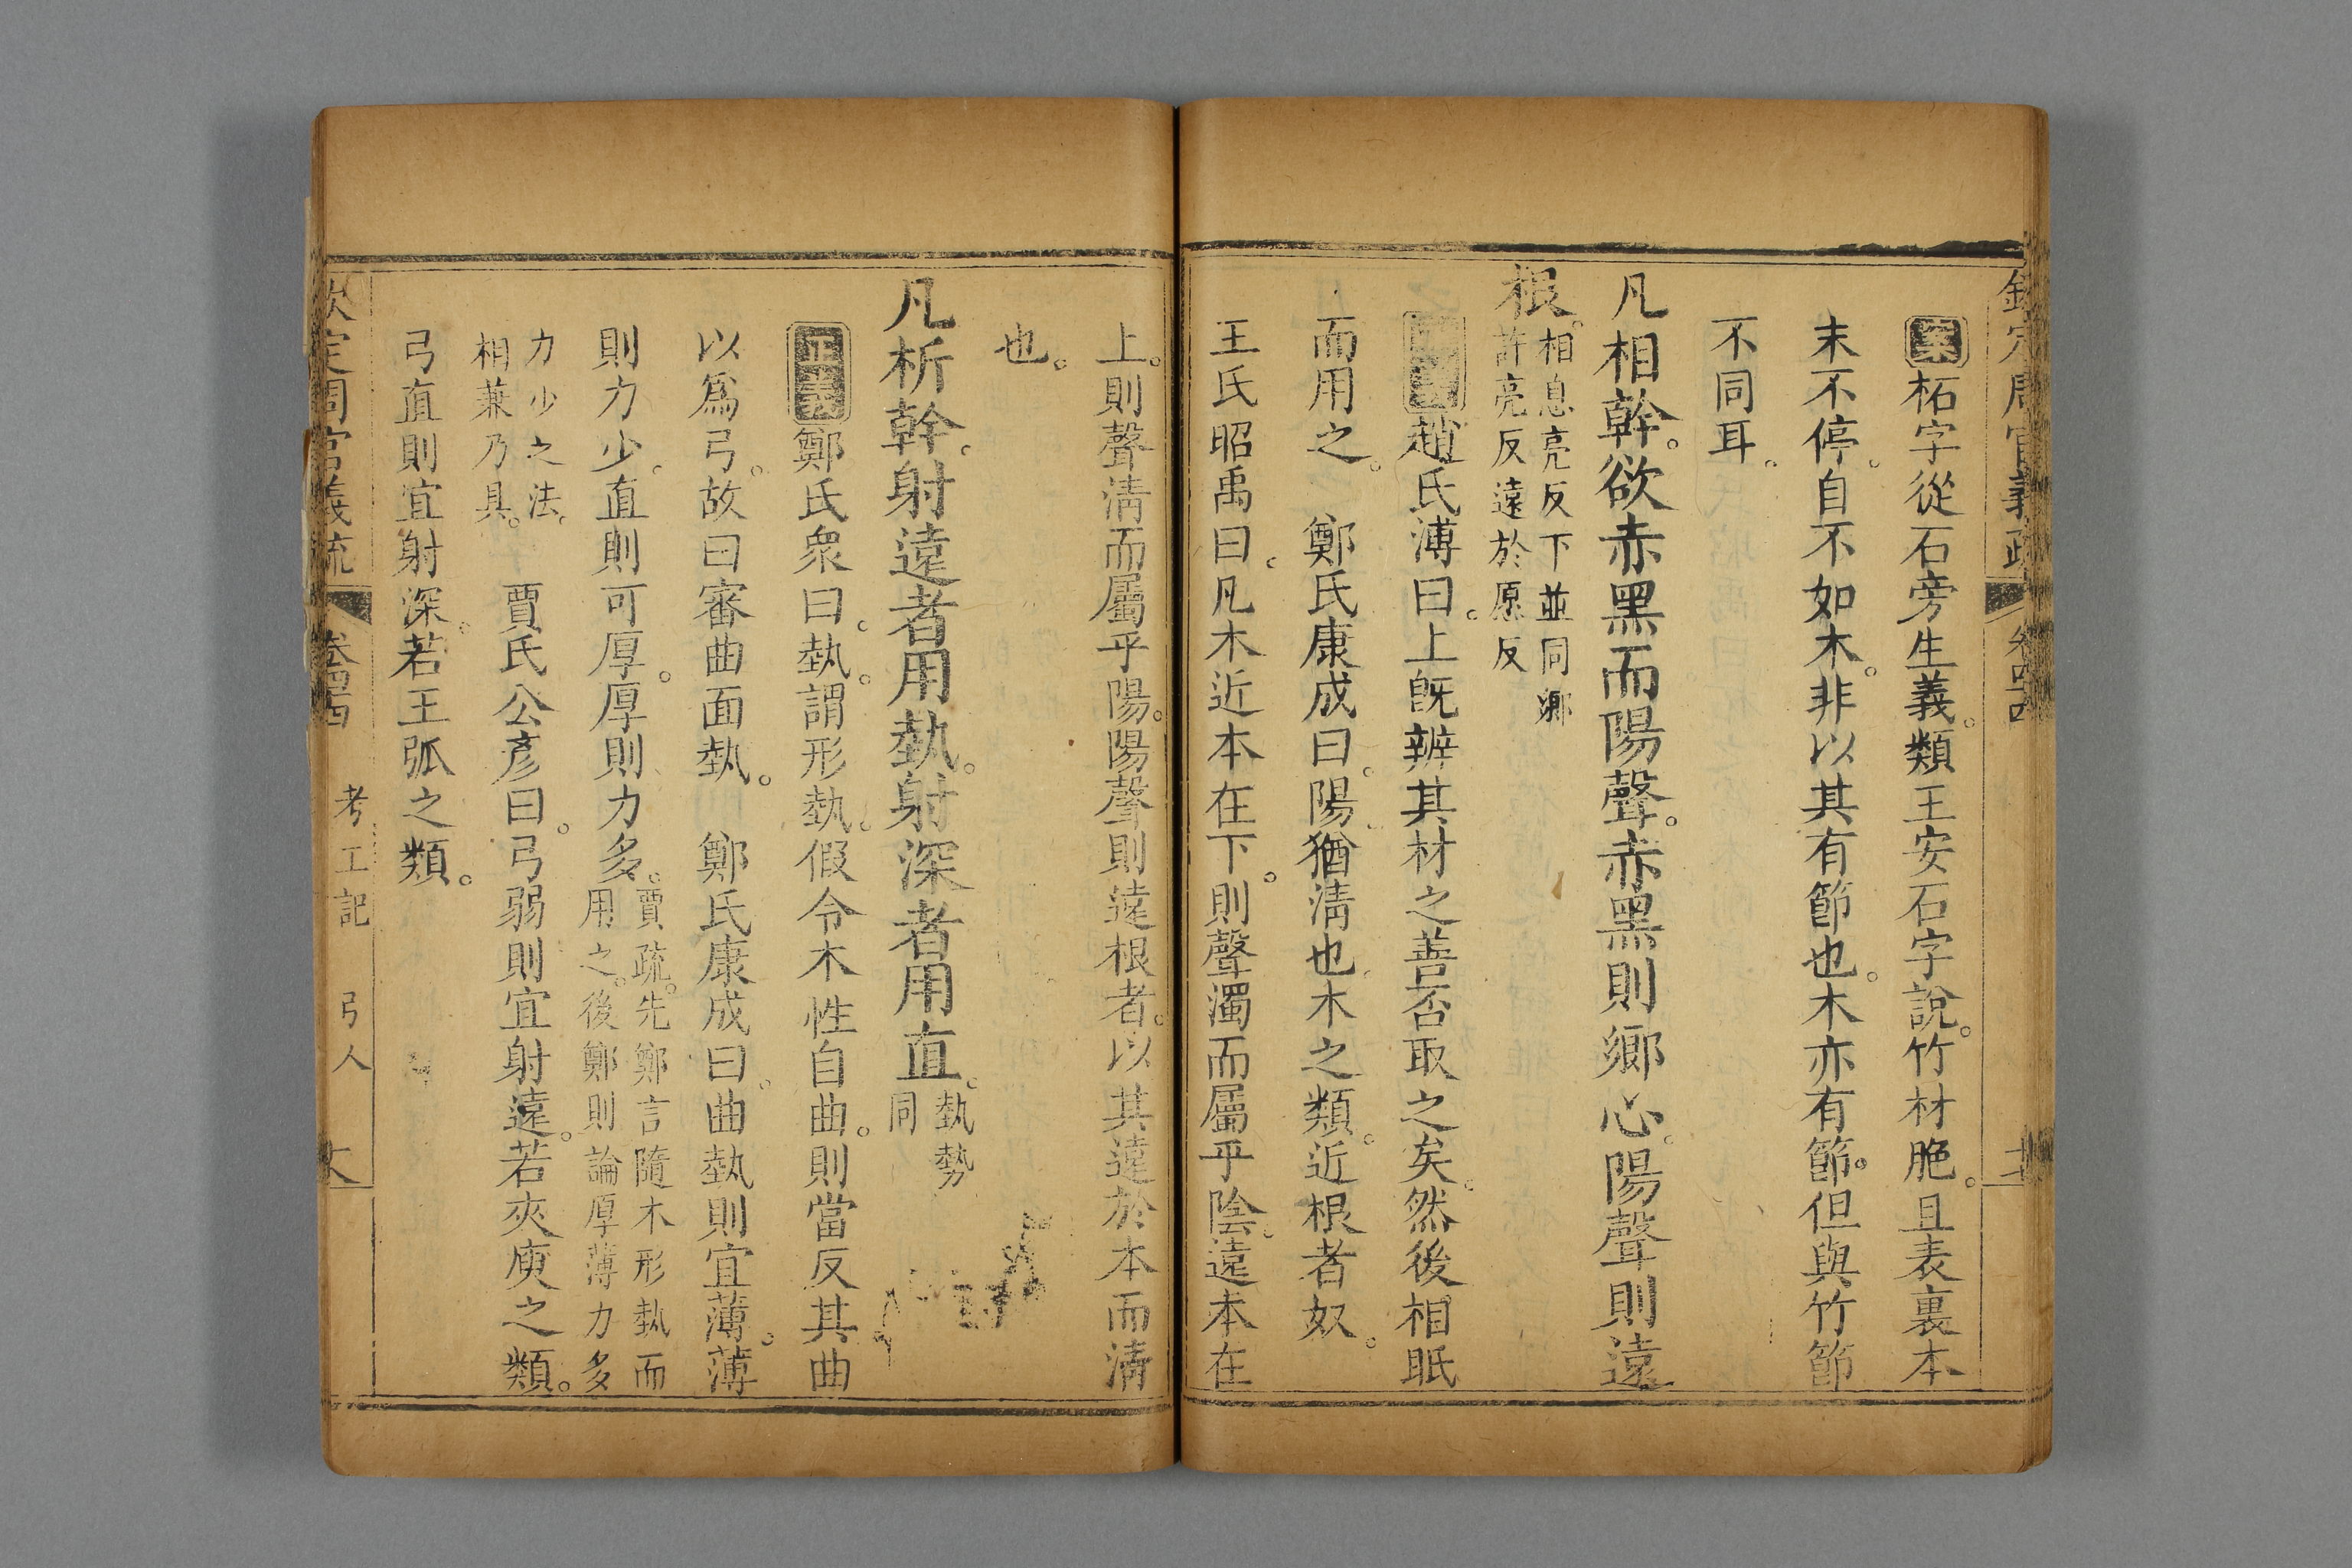 欽定周官義疏 卷四十四
案柘字從石旁生義。類王安石字說。竹材脆。且表裏本
末不停。自不如木。非以其有節也。木亦有節。但與竹節
不同耳。
凡相幹。欲赤黑而陽聲。赤黑則鄉心。陽聲則遠
根。相息亮反下並同鄉
許亮反遠於原反
趙氏溥曰。上旣辨其材之善否取之矣。然後相眂
而用之。 鄭氏康成曰。陽猶淸也。木之類。近根者奴。
王氏昭禹曰。凡木近本在下。則聲濁而屬乎陰。遠本在
上。則聲淸而屬乎陽。陽聲則遠根者。以其遠於本而淸
也。
凡析幹。射遠者用埶。射深者用直。埶勢
同
正義鄭氏衆曰。埶。謂形埶。假令木性自曲。則當反其曲
以爲弓。故曰審曲面埶。 鄭氏康成曰。曲埶則宜薄。薄
則力少。直則可厚。厚則力多。賈疏。先鄭言隨木形埶而
用之。後鄭則論厚薄力多
力少之法。
相兼乃具。 賈氏公彥曰。弓弱則宜射遠。若夾庾之類。
弓直則宜射深。若王弧之類。
欽定周官義疏 卷四十四 考工記 弓人